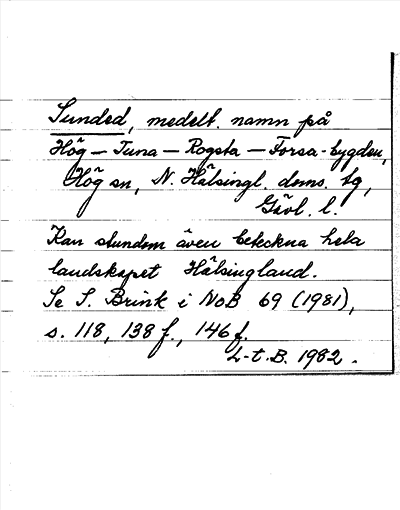 Sunded, medelt. namn på
Hög – Tuna – Rogsta – Forsa-bygden,
Hög sn, N. Hälsingl. doms. tg,
Gävl. l.
Kan stundom även beteckna hela
landskapet Hälsingland.
Se S. Brink i NoB 69 (1981),
s. 118, 138 f., 146 f.
L-t. B. 1982.